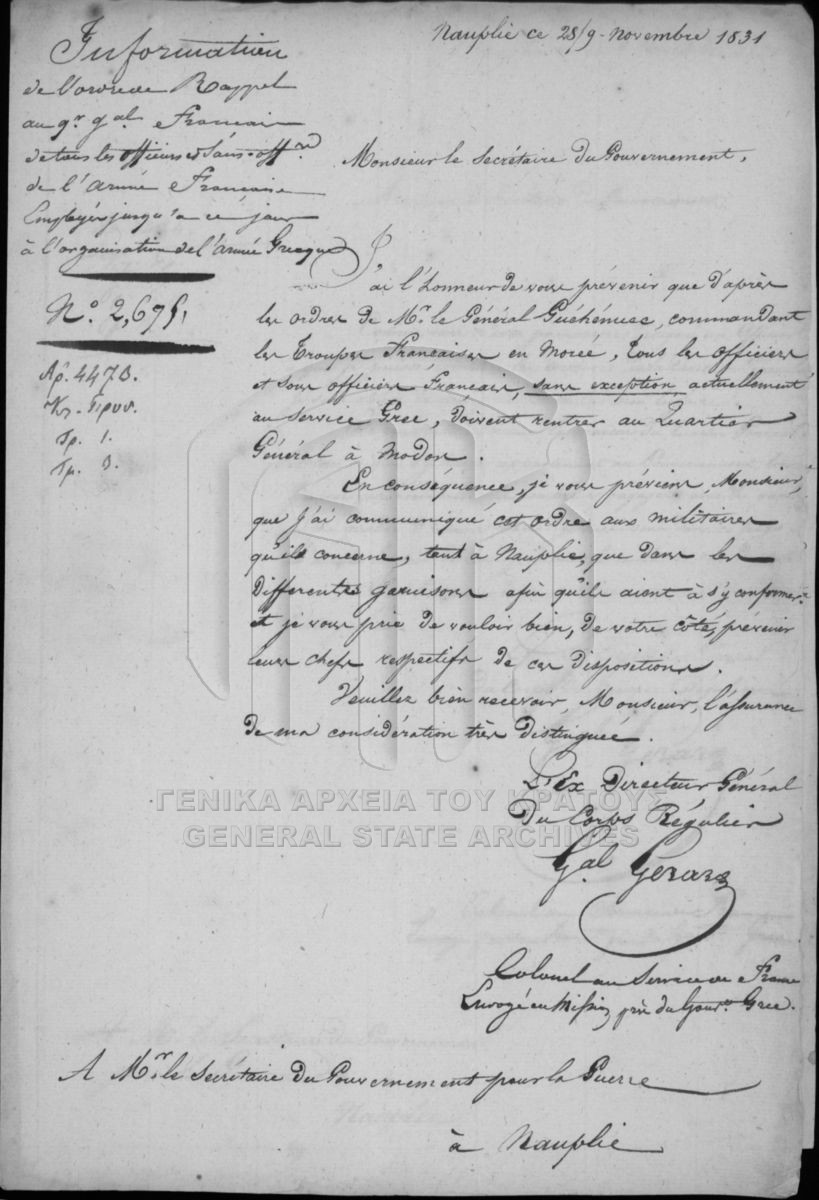 Nauplie ce 28/9 Novembre 1831
Information
de l'ordre de Rappel
au qr. gal. Francais
de tous les officiers et sous-offrs
de l'Armée Francaise
Employés jusqu'a ce jour
à l'organisation de l'Armée Grecque
No. 2,675.
Αρ. 4473.
Τρ. 1.
Τμ. 3.
Monsieur le Secrétaire du Gouvernement,
J'ai l'honneur de vous prévenir que d'après
les ordres de Mr. le Général Guéhéneuc, commandant
les Troupes Françaises en Morée, tous les officiers
et sous officiers Français, sans exception, actuellement
au service Grec, doivent rentrer au Quartier
Général à Modon.
En conséquence, je vous préviens, Monsieur,
que j'ai communiqué cet ordre aux militaires
qu'ils concerne, tant à Nauplie, que dans les
differentes garnisons afin qu'ils aient à s'y conformer
et je vous prie de vouloir bien, de votre côté, prévenir
leurs chefs respectifs de ces dispositions.
Veuillez bien recevoir, Monsieur, l'assurance
de ma considération très distinguée.
L'Ex Directeur Général
Du Corps Régulier
Gal Gerard
Colonel au Service de France
Envoyé en Mission près du Gouvt. Grec.
A Mr. le Secrétaire du Gouvernement pour la Guerre
à Nauplie
ΓΕΝΙΚΑ ΑΡΧΕΙΑ ΤΟΥ ΚΡΑΤΟΥΣ
GENERAL STATE ARCHIVES